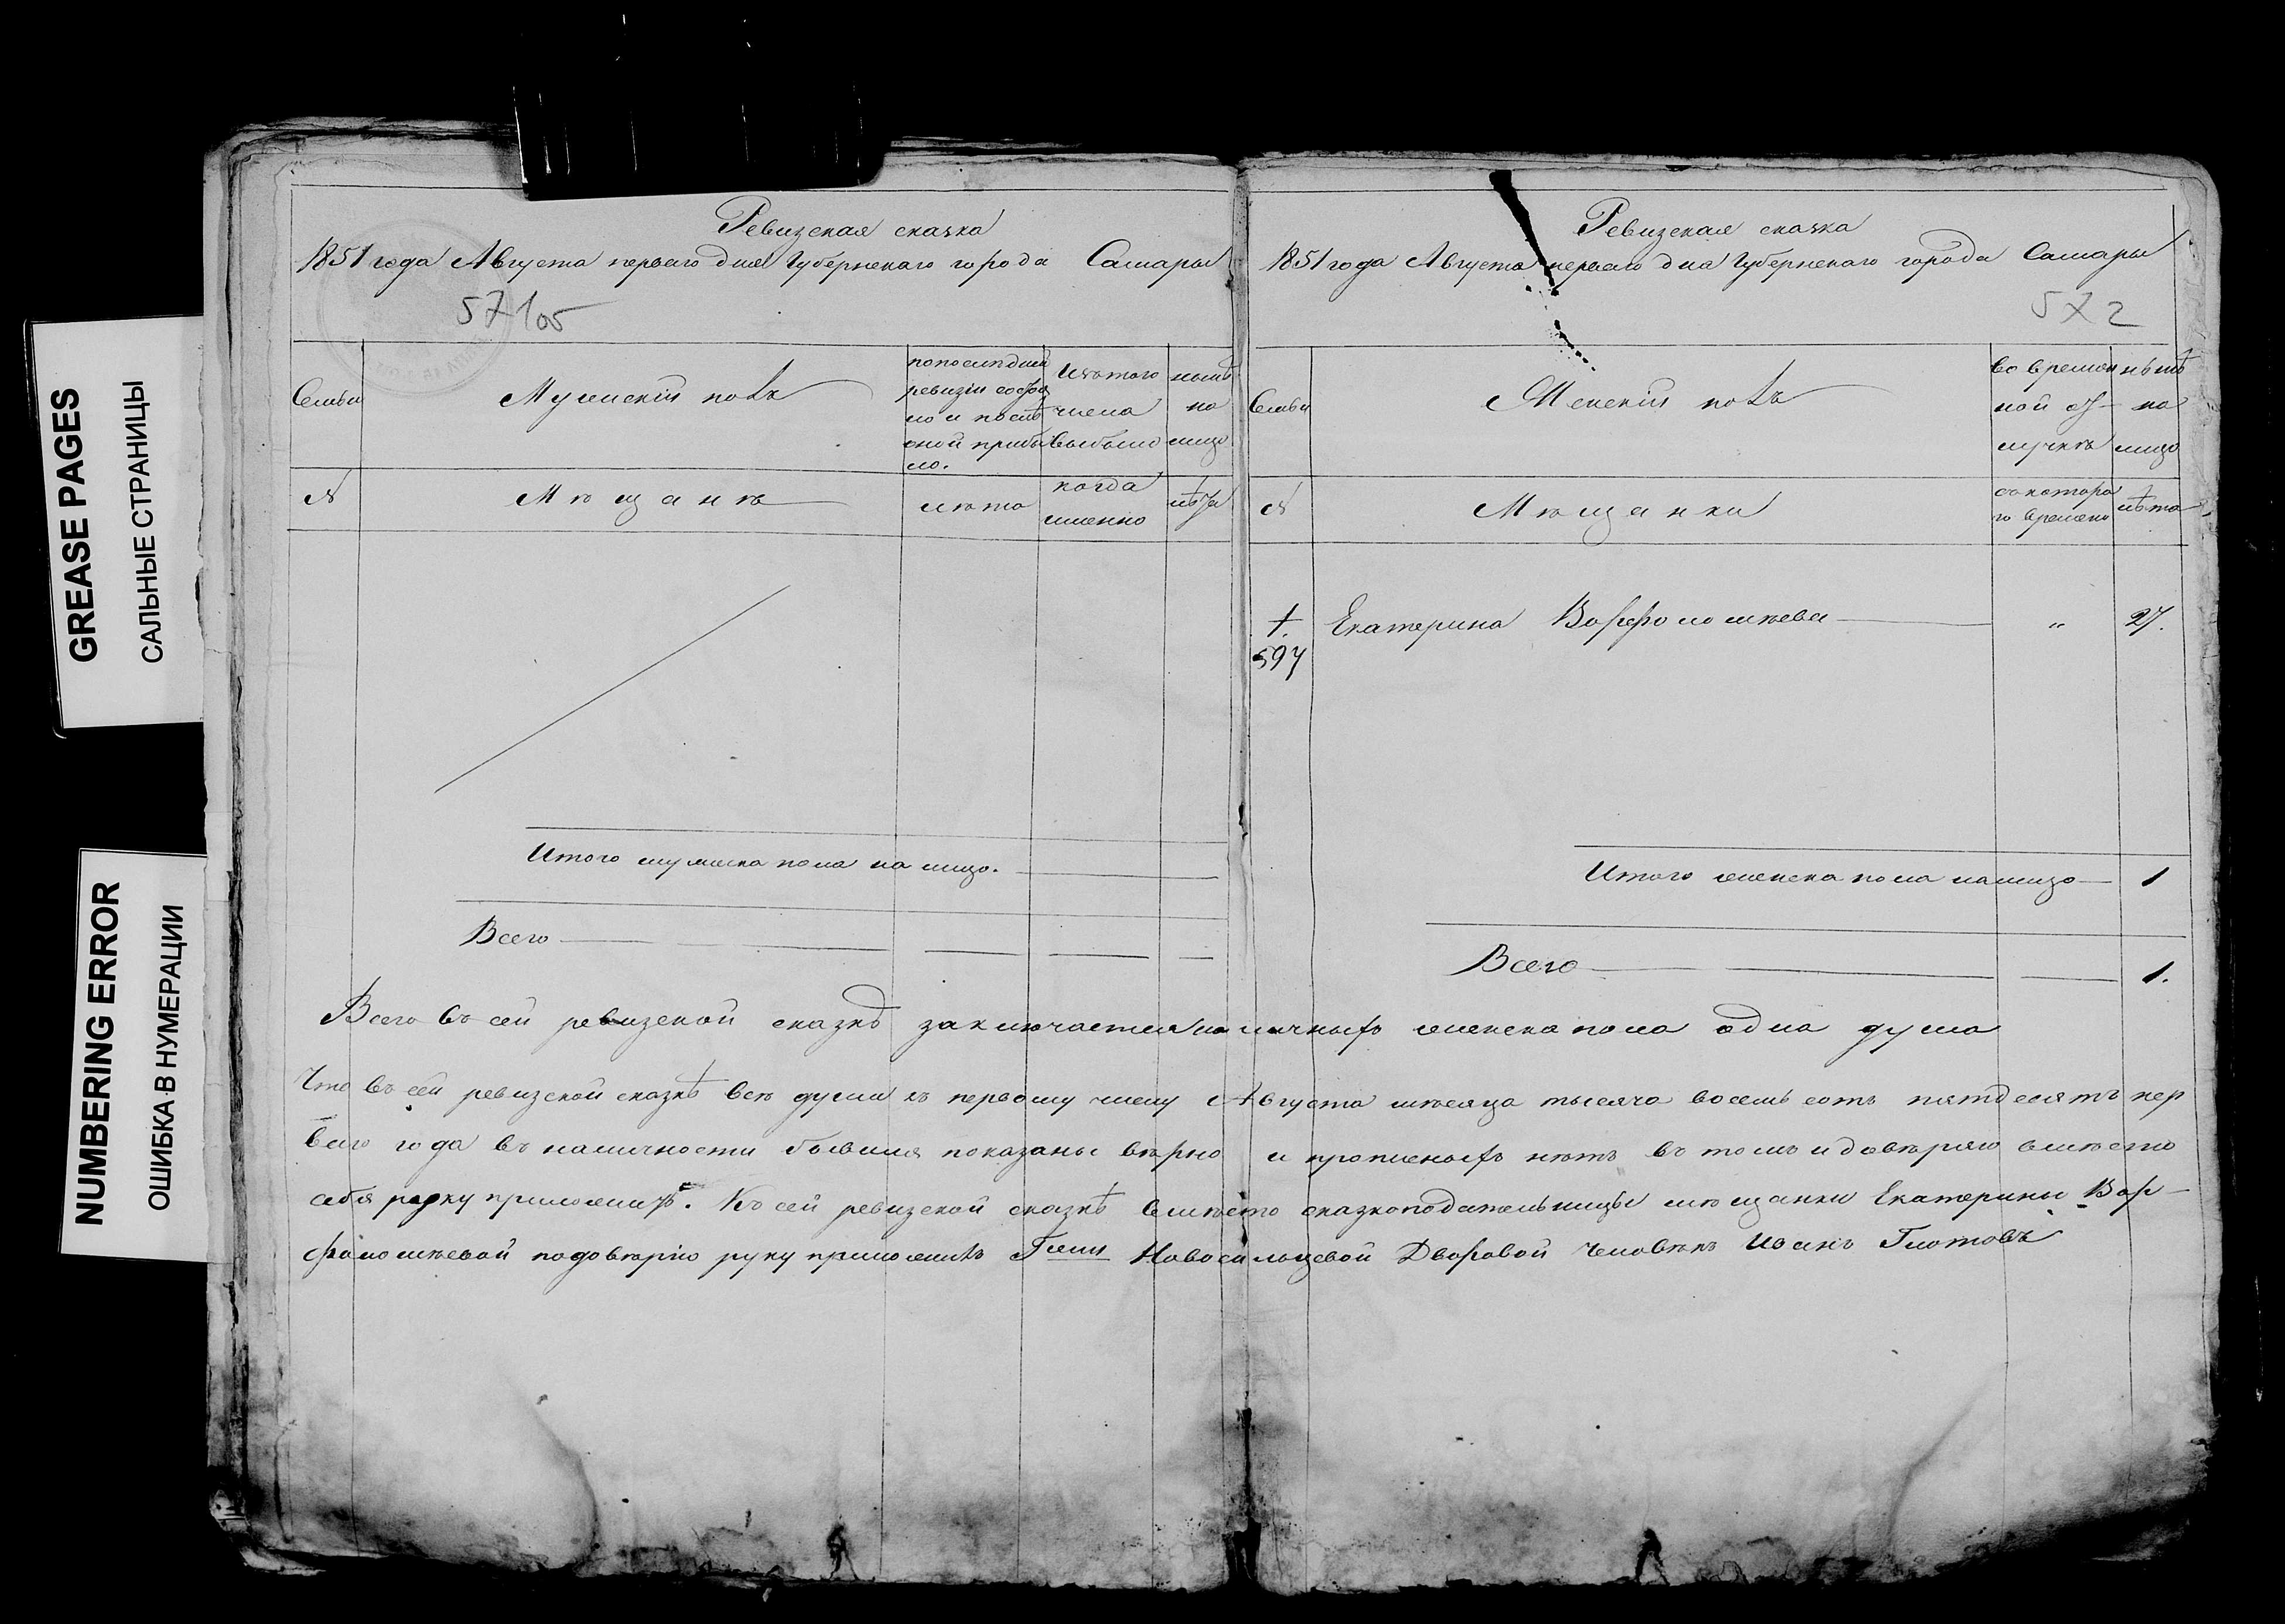 GREASE PAGES
САЛЬНЫЕ СТРАНИЦЫ
NUMBERING ERROR
ОШИБКА В НУМЕРАЦИИ
Ревизская сказка
1851 года Августа перваго дня Губернскаго города Самары
57105
Семьи
Мужеский полъ
по последней
ревизіи состоя
ло и после
оной прибы
ло.
Изъ того
числа
выбыло
ныне
на
лицо
№
Мѣщанъ
лѣта
когда
именно
лѣта
Итого мужеска пола на лицо.
Всего
Ревизская сказка
1851 года Августа перваго дня Губернскаго города Самары
572
Семьи
Женскій полъ
во времен
ной от-
лучкѣ
нынѣ
на
лицо
№
Мѣщанки
съ котора
го времени
лѣта
1. Екатерина Варфоломѣева " 27.
597
Итого женска пола налицо 1
Всего 1.
Всего въ сей ревизской сказкѣ заключается наличныхъ женска пола одна душа
Что въ сей ревизской сказкѣ всѣ души къ первому числу Августа мѣсяца тысяча восемь сотъ пятдесятъ пер
ваго года въ наличности бывшія показаны вѣрно и прописныхъ нѣтъ въ томъ и довѣряю вмѣсто
себя руку приложить. Къ сей ревизской сказкѣ вмѣсто сказкоподательницы мѣщанки Екатерины Вар-
фоломѣевой по довѣрію руку приложилъ Гжи Новосильцевой Дворовой человѣкъ Иванъ Глотовъ